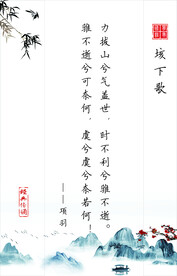 垓下歌
力拔山兮气盖世，时不利兮骓不逝。
骓不逝兮可奈何，虞兮虞兮奈若何！
——项羽
经典
传诵